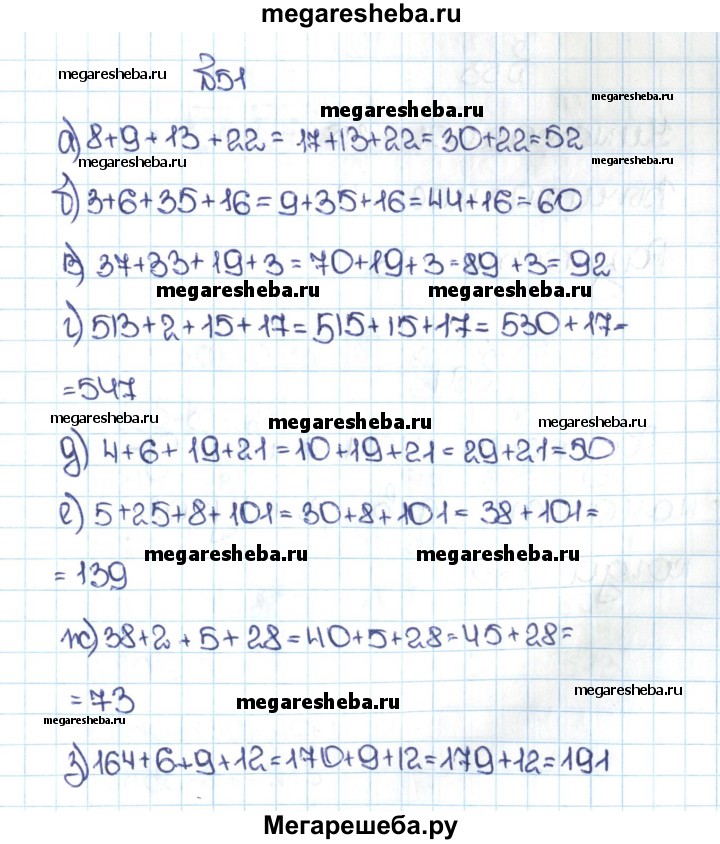 megaresheba.ru
№51
megaresheba.ru
megaresheba.ru
megaresheba.ru
а) 8+9+13+22=17+13+22=30+22=52
megaresheba.ru
megaresheba.ru
б) 3+6+35+16=9+35+16=44+16=60
в) 37+33+19+3=70+19+3=89+3=92
megaresheba.ru
megaresheba.ru
г) 513+2+15+17=515+15+17=530+17=
=547
megaresheba.ru
megaresheba.ru
megaresheba.ru
д) 4+6+19+21=10+19+21=29+21=50
е) 5+25+8+101=30+8+101=38+101=
megaresheba.ru
megaresheba.ru
=139
ж) 38+2+5+28=40+5+28=45+28=
megaresheba.ru
=73
megaresheba.ru
megaresheba.ru
з) 164+6+9+12=170+9+12=179+12=191
Мегарешеба.ру